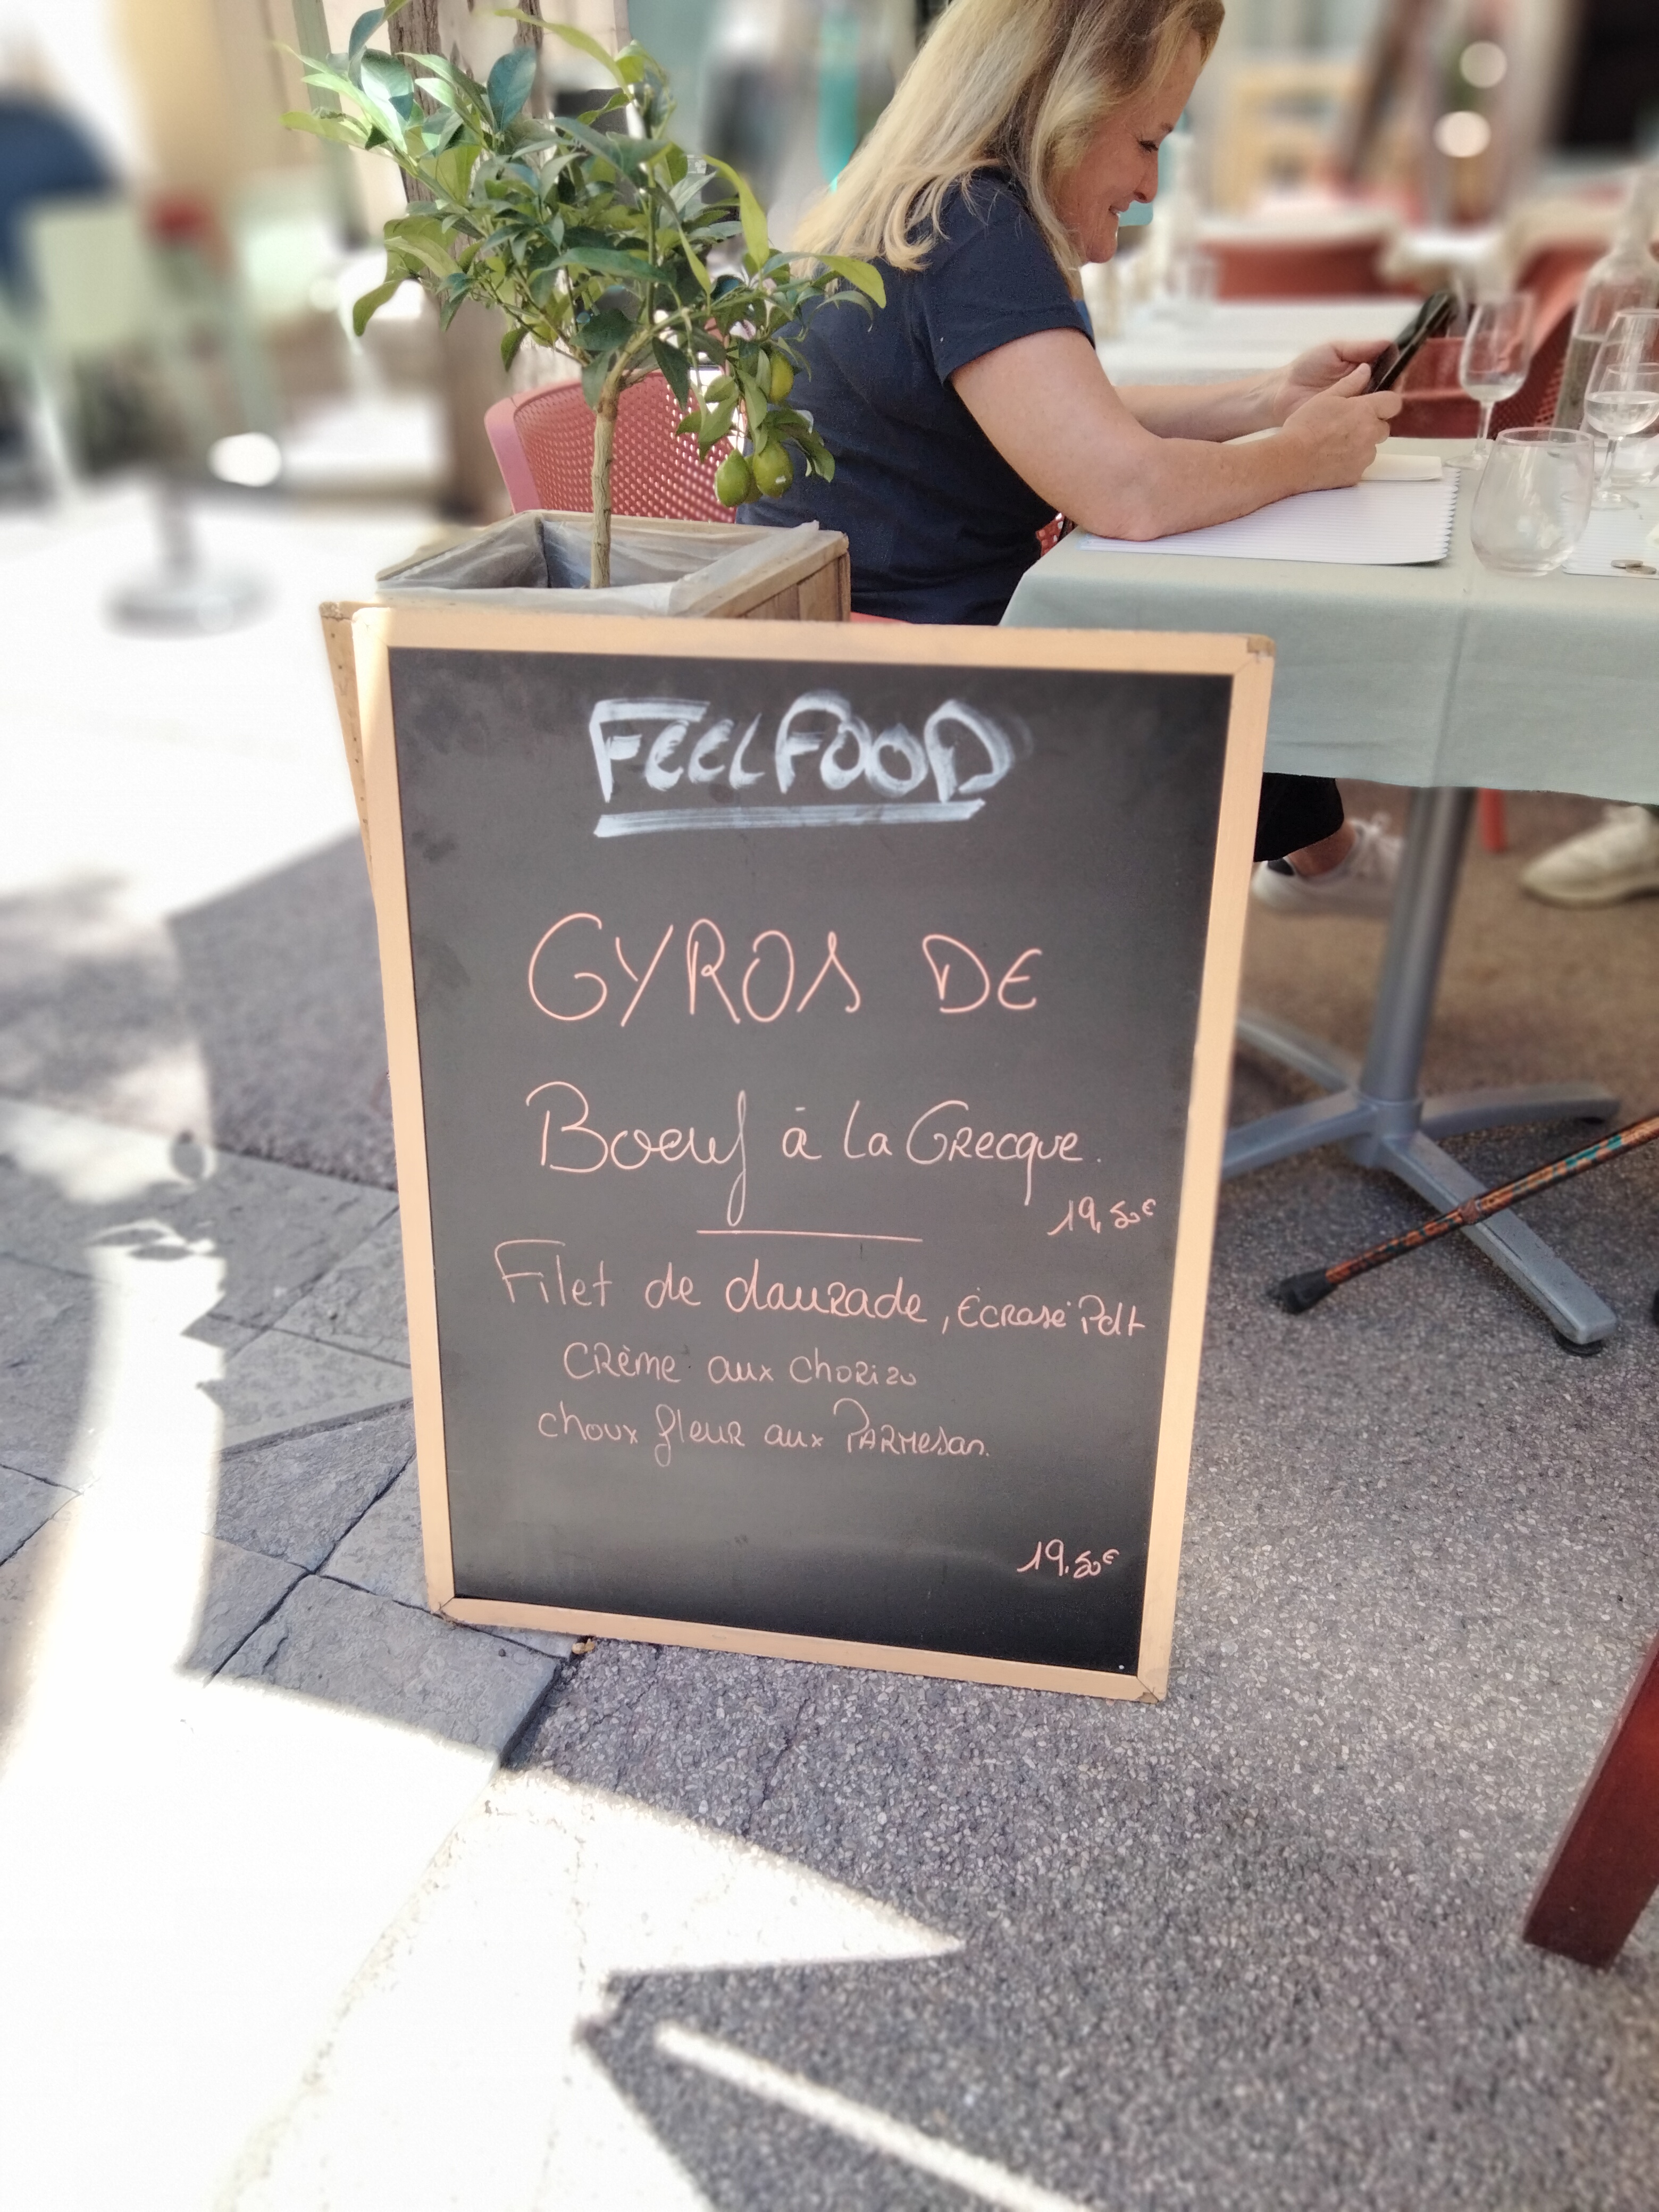 FEELFOOD
GYROS DE
Boeuf à la GRecque.
19,50€
Filet de dauRade, ECRasé Pdt
CRème aux choRizo
choux fleuR aux PARMesan.
19.50€